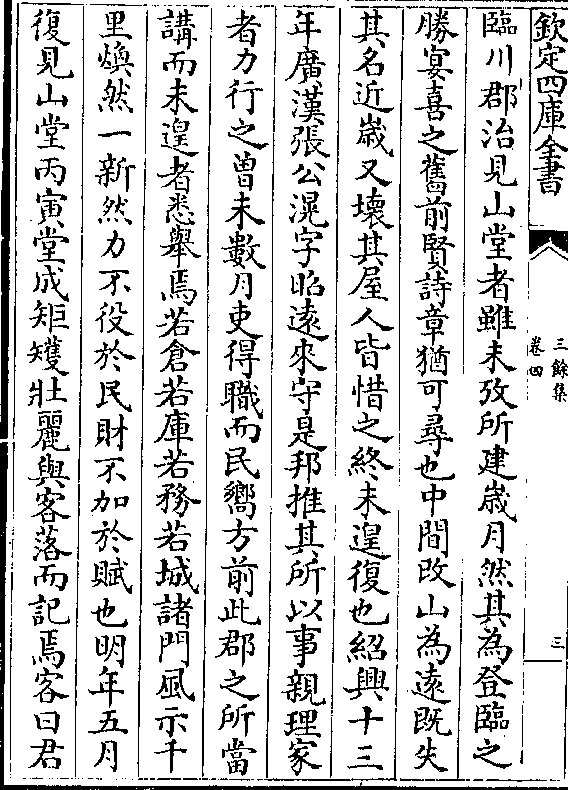 欽定四庫全書
三餘集
卷四
三
臨川郡治見山堂者雖未攷所建歲月然其為登臨之
勝宴喜之舊前賢詩章猶可尋也中間改山為遠既失
其名近嵗又壊其屋人皆惜之終未遑復也紹興十三
年廣漢張公滉字昭逺來守是邦推其所以事親理家
者力行之曽未數月吏得職而民嚮方前此郡之所當
講而未遑者悉舉焉若倉若庫若務若城諸門風示千
里煥然一新然力不役於民財不加於賦也明年五月
復見山堂丙寅堂成矩矱壯麗與客落而記焉客曰君